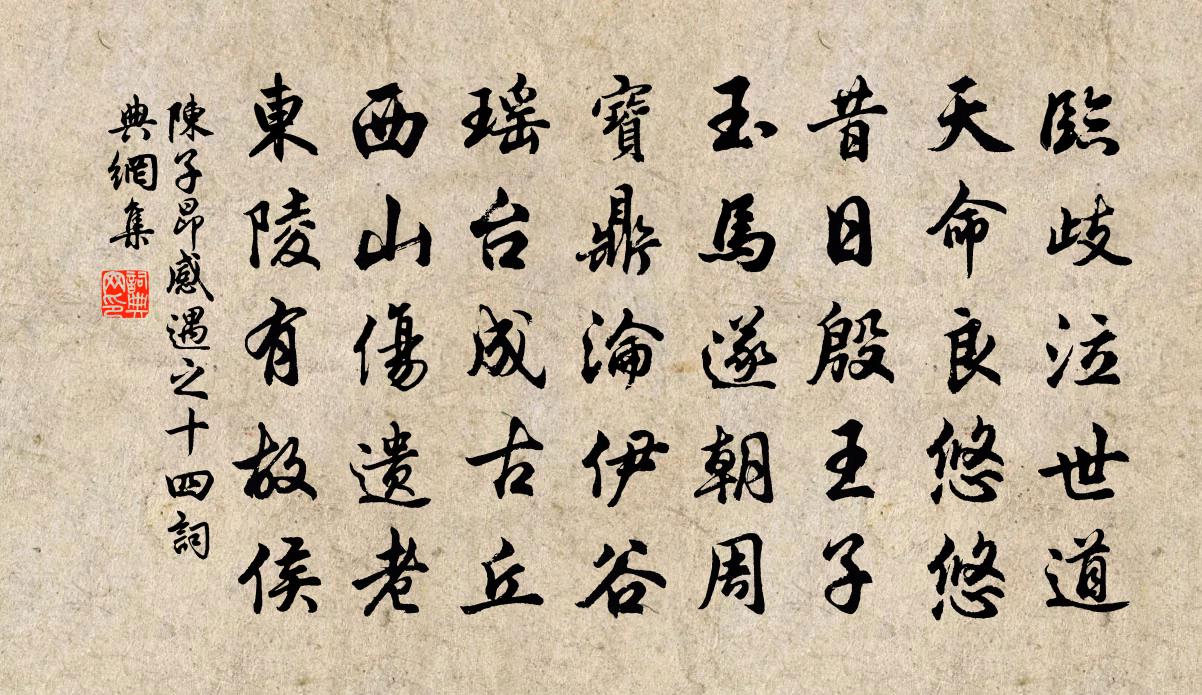 臨歧泣世道
天命良悠悠
昔日殷王子
玉馬遂朝周
寶鼎淪伊谷
瑶台成古丘
西山傷遺老
東陵有故侯
陳子昂感遇之十四詞
典網集
詞典網印